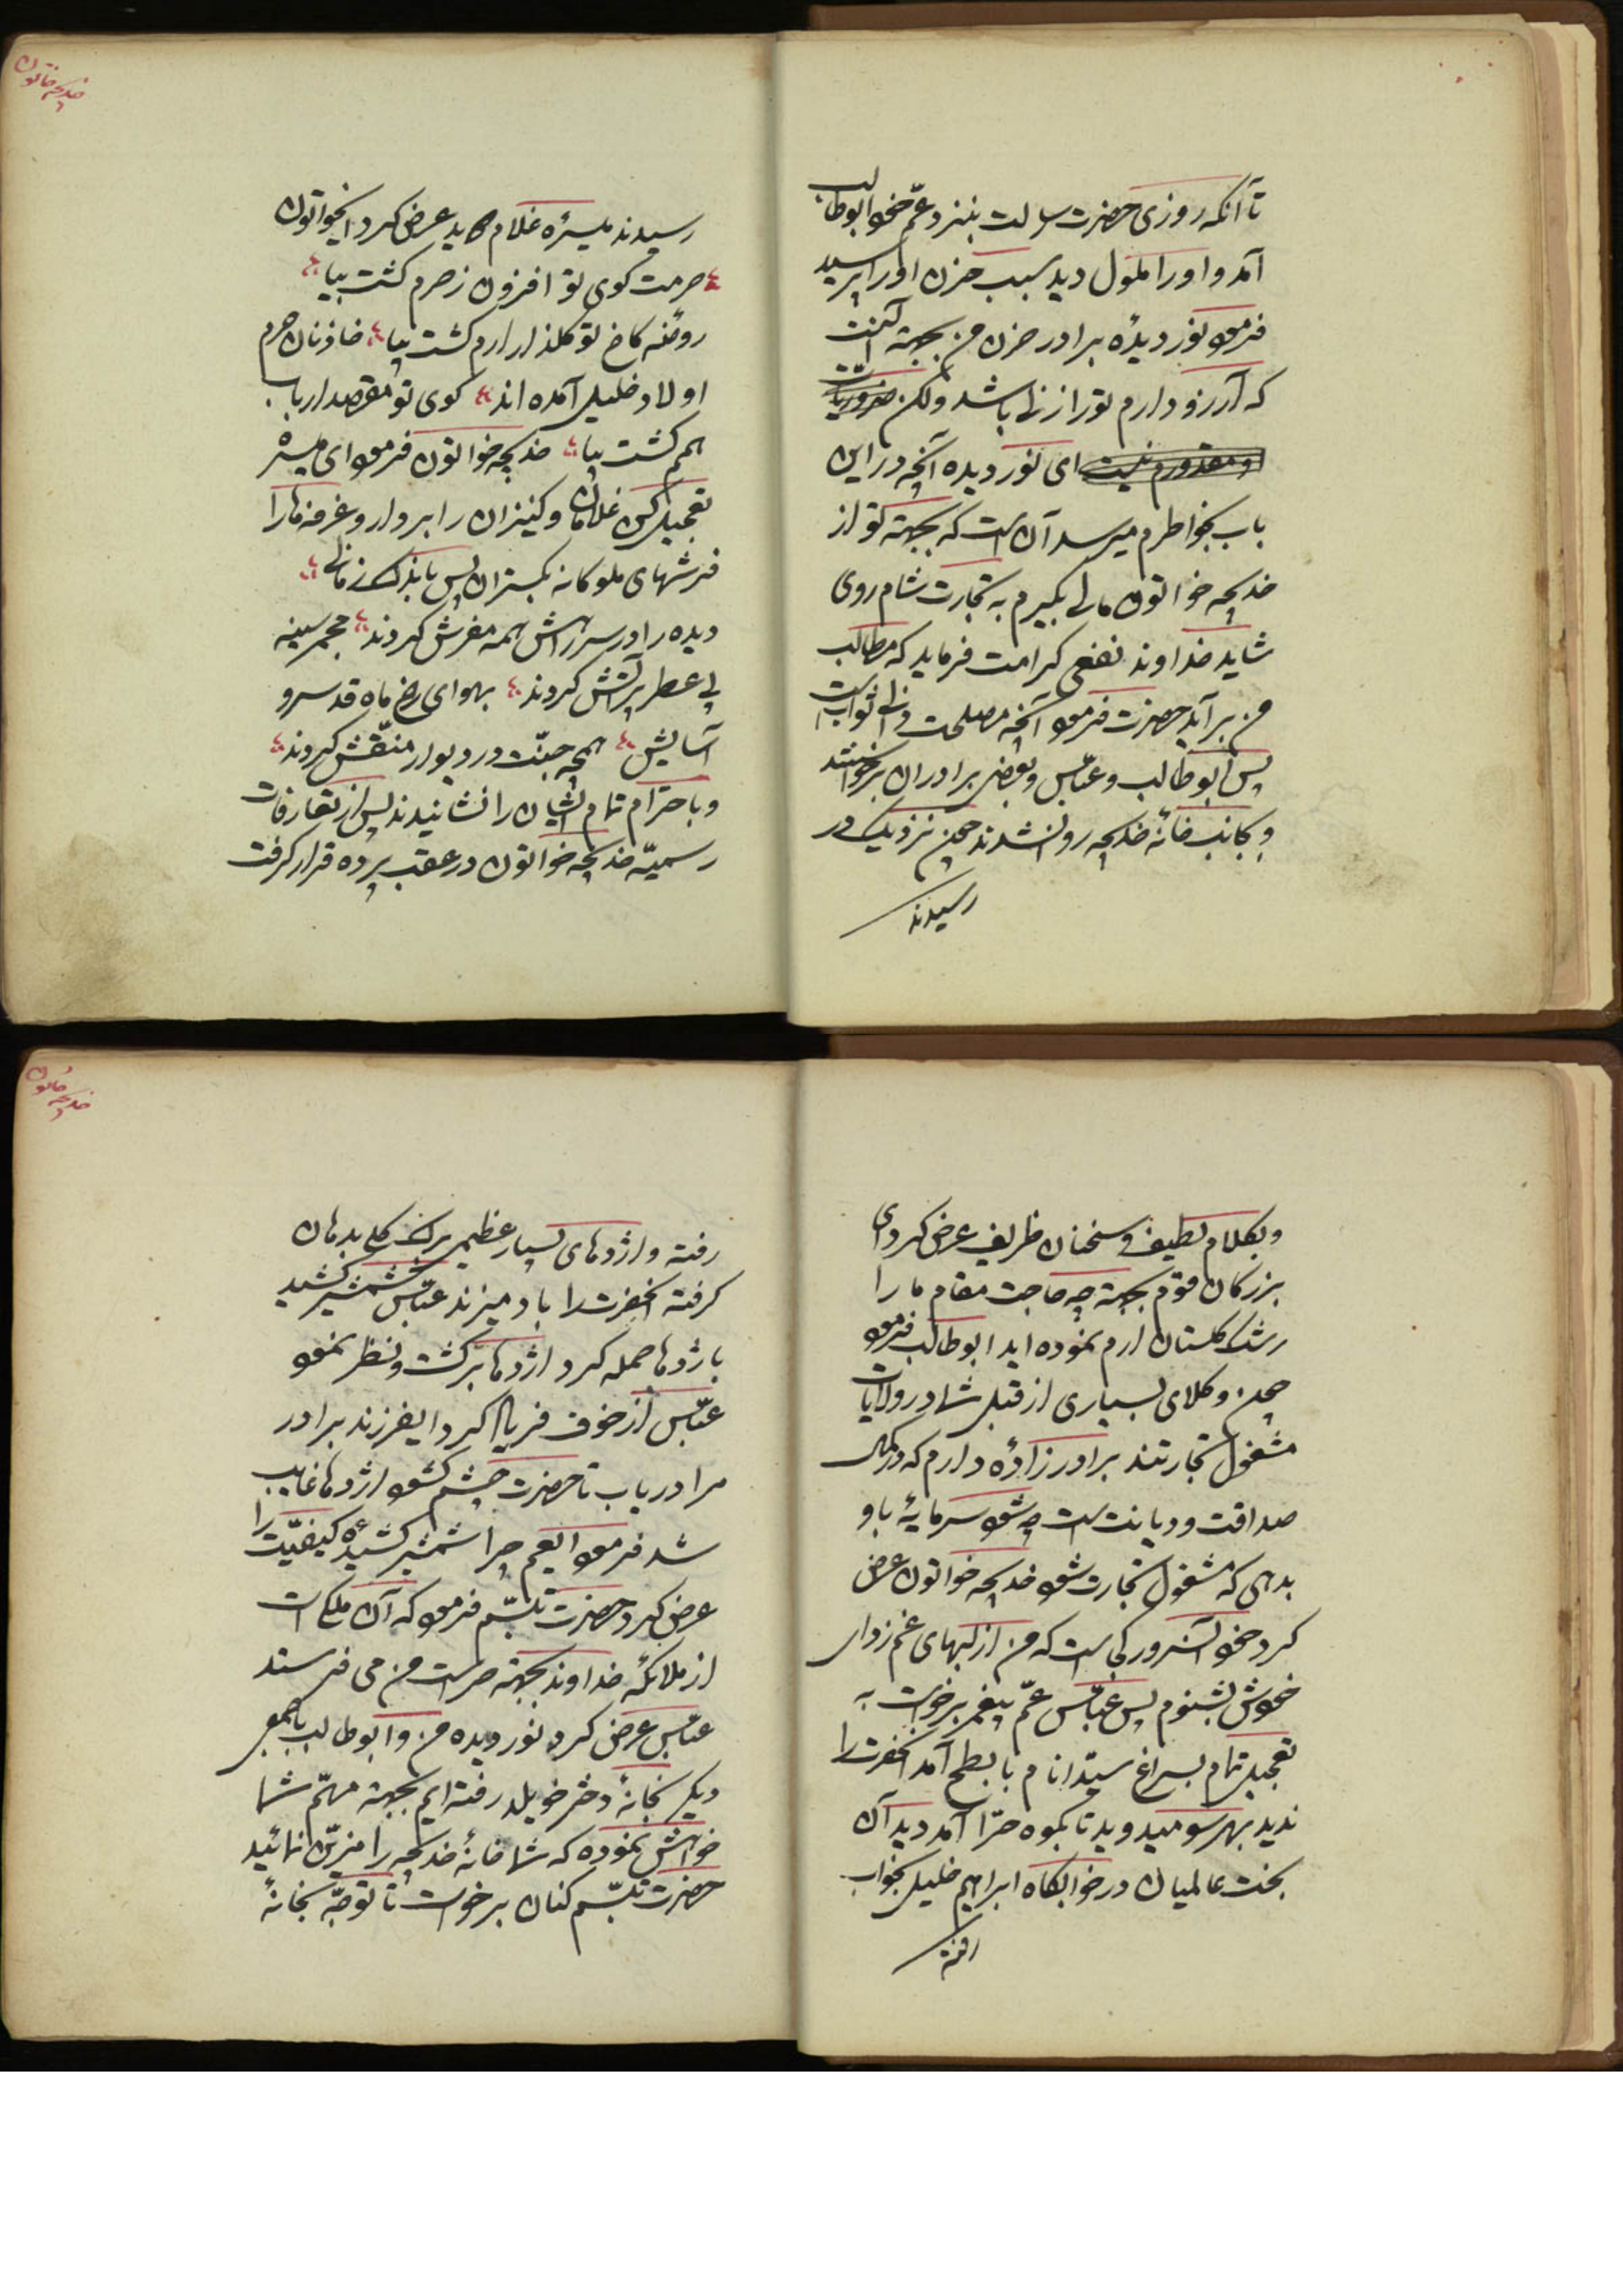 تا آنکه روزی حضرت رسالت بنزد عمّ خود ابوطالب
آمد و او را ملول دید سبب حزن او را پرسید
فرمود نور دیده برادر حزن من بجهته آنست
که آرزو دارم تو را زنی باشد ولکن ضروریات
و مقدورم نیست ای نور دیده آنچه در این
باب بخواطرم میرسد آن است که بجهته تو از
خدیجه خواتون مالی بگیرم به تجارت شام روی
شاید خداوند نفعی کرامت فرماید که مطالب
من برآید حضرت فرمود آنچه مصلحت دانی ثواب است
پس ابوطالب و عبّاس و بعضی برادران برخواستند
و بجانب خانهٔ خدیجه روانه شدند چون نزدیک در
رسیدند
خدیجه خاتون
رسیدند میسره غلام دید عرض کرد ایخواتون
حرمت کوی تو افزون ز حرم گشت بیا
روضه کاخ تو گلذار ارم گشت بیا خاذنان حرم
اولاد خلیل آمده اند کوی تو مقصد ارباب
همم گشت بیا خدیجه خواتون فرمود ای میسره
تعجیل کن غلامان و کنیزان را بردار و غرفه ها را
فرشهای ملوکانه بگستران پس باندک زمانی
دیده را در سر راهش همه مفرش کردند مجمر سینه
پی عطر پر آتش کردند بهوای رخ ماه قد سرو
آسایش همچه جنّت در و دیوار منقّش کردند
و باحترام تمام ایشان را نشانیدند پس از تعارفات
رسمیّه خدیجه خواتون در عقب پرده قرار گرفت
و بکلام لطیف و سخنان ظریف عرض کرد ای
بزرگان قوم بجهته چه حاجت مقام ما را
رشک گلستان ارم نموده اید ابوطالب فرمود
چون وکلای بسیاری از قبل شما در ولایات
مشغول تجارتند برادر زادهٔ دارم که در کمال
صداقت و دیانت است چه شود سرمایهٔ باو
بدهی که مشغول تجارت شود خدیجه خواتون عرض
کرد خود آنسرور کجاست که من از لبهای غم زدای
خودش بشنوم پس عبّاس عمّ پیغمبر برخواست به
تعجیل تمام بسراغ سیّد انام بابطح آمد آنحضرت را
ندید بهر سو میدوید تا بکوه حرّا آمد دید آن
بخت عالمیان در خوابگاه ابراهیم خلیل بخواب
رفته
خدیجه خاتون
رفته و اژدهای بسیار عظیم برگ گلی بدهان
گرفته آنحضرت را باد میزند عبّاس شمشیر کشید
باژدها حمله کرد اژدها برگشت و نظر نمود
عبّاس از خوف فریاد کرد ایفرزند برادر
مرا دریاب تا حضرت چشم گشود اژدها غایب
شد فرمود ایعم چرا شمشیر کشیدهٔ کیفیّت را
عرض کرد حضرت تبسّم فرمود که آن ملکی است
از ملائکهٔ خداوند بجهته حراست من می فرستد
عبّاس عرض کرد نور دیده من و ابوطالب با جمعی
دیگر بخانهٔ دختر خویلد رفته ایم بجهته مهمّ شما
خواهش نموده که شما خانهٔ خدیجه را مزیّن نمائید
حضرت تبسّم کنان برخواست تا توجّه بخانهٔ